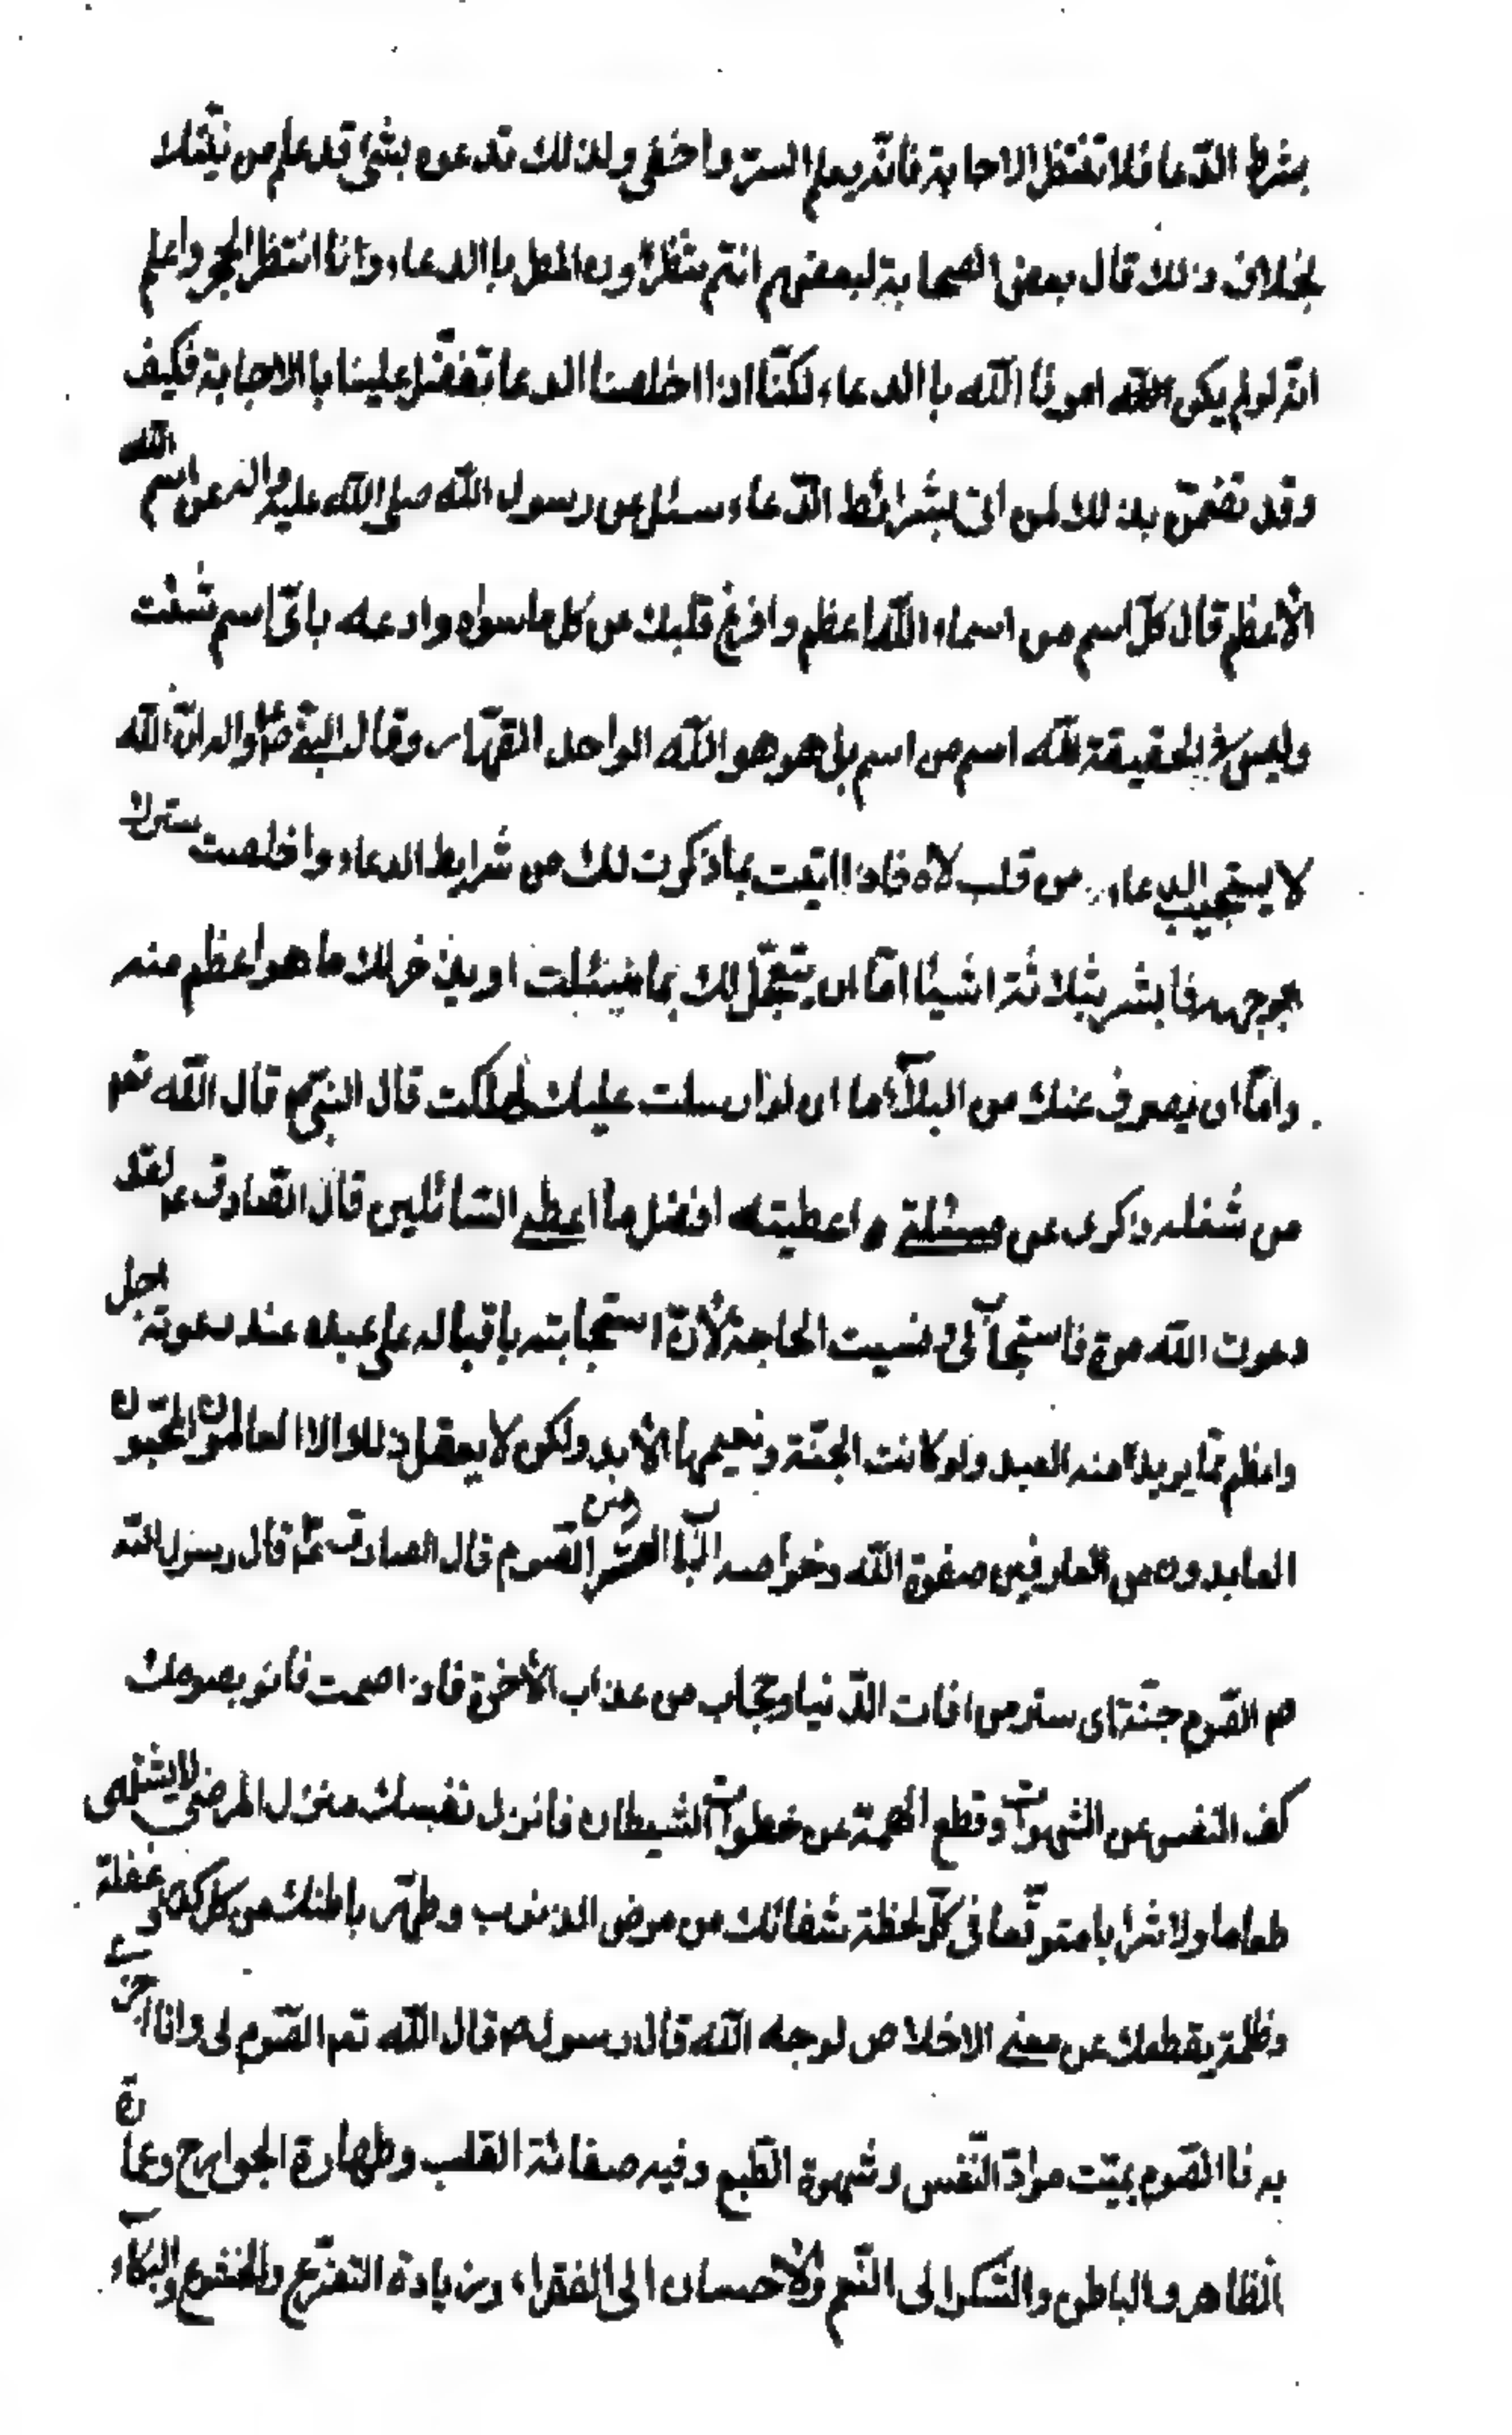 بشرط الدّعا فلا تنتظر الاجابة فانّه يعلم السرّ واخفى ولذلك تدعوه بشئ قد علم من نيّتك
بخلاف ذلك قال بعض الصحابة لبعضهم انتم تنتظرون المطر باالدعاء وانا انتظر الحجر واعلم
انّه لو لم يكن امرنا اللّه باالدعاء لكنّا اذا اخلصنا الدعا تفضّل علينا باالاجابة فكيف
وقد تضمّن بذلك لمن اتى بشرائط الدّعاء سئل عن رسول اللّه صلى اللّه عليه واله عن اسم اللّه
الأعظم قال كلّ اسم من اسماء اللّه اعظم وافرغ قلبك من كل ما سواه وادعه باىّ اسم شئت
وليس فى الحقيقة للّه اسم من اسم بل هو هو اللّه الواحد القهّار وقال النبىّ ص واله انّ اللّه
لا يستجيب الدعاء من قلب لاه فاذا اتيت بما ذكرت لك من شرايط الدعاء واخلصت سترك
بوجهه فابشر بثلاثة اشيئا امّا ان يتعجّل لك بما سئلت او يدّخر لك ما هو اعظم منه
وامّا ان يصرف عنك من البلآء ما ان لو ارسلت عليك لهلكت قال النبىّ ص قال اللّه تعم
من شغله ذكرى عن مسئلتى اعطيته افضل ما اعطى السّائلين قال الصّادق ع لقد
دعوت اللّه مرة فاستجآب لى ونسيت الحاجة لأنّ استجابته باقباله على عبده عند دعوته اجل
واعظم ممّا يريد منه العبد ولو كانت الجنّة ونعيمها الأبد ولكن لا يعقل ذلك الا العالمون المحبّون
العابدون من العارفين صفوة اللّه وخواصه الباب العشرون الصّوم قال الصادق ع قال رسول اللّه
ص الصّوم جنّة اى ستر من افات الدّنيا وحجاب من عذاب الأخرة فاذا صمت فانو بصومك
كف النفس عن الشهوات وقطع الهمّة عن خطوات الشيطان فانزل نفسك منزل المرضى لا يشتهى
طعاما ولا شرابا متوقّعا فى كلّ لحظة شفائك من مرض الذنوب وطهّر باطنك من كل كدر وغفلة
وظلمة يقطعك عن معنى الاخلاص لوجه اللّه قال رسول ص قال اللّه تعم الصّوم لى وانا اجزى
به فاالصّوم يميّت مرادّ النّفس وشهوة الطّبع وفيه صفائة القلب وطهارة الجوارح وعمارة
الظاهر والباطن والشكر الى النّعم والأحسان الى الفقراء وزيادة التضرّع والخشوع والبكآء